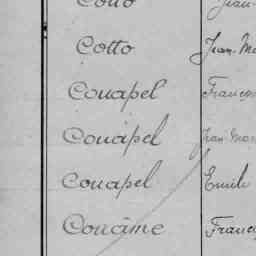 Cotto Jean-
Cotto Jean-Ma
Couapel François
Couapel Jean Mar
Couapel Emile
Couaime Franço